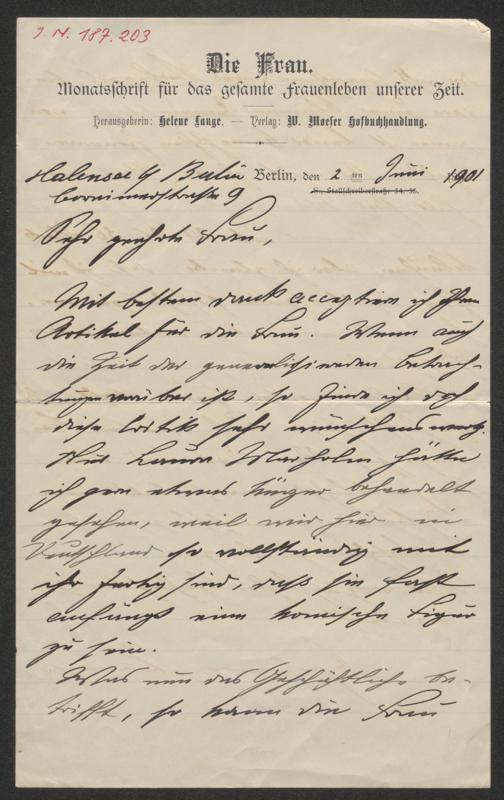 J. N. 187.203
Die Frau.
Monatsschrift für das gesamte Frauenleben unserer Zeit.
Herausgeberin: Helene Lange. — Verlag: W. Moeser Hofbuchhandlung.
Halensee b/ Berlin Berlin, den 2 ten Juni 1901
S., Stallschreiberstraße 34. 35.
Bornimerstraße 9
Sehr geehrte Frau,
Mit bestem Dank acceptiere ich Ihren
Artikel für die Frau. Wenn auch
die Zeit der generalisierenden Betrach-
tungen vorüber ist, so finde ich doch
diese Kritik sehr wünschenswerth.
Nur Laura Marholm hätte
ich gern etwas kürzer behandelt
gesehen, weil wir hier in
Deutschland so vollständig mit
ihr fertig sind, daß sie fast
anfängt eine komische Figur
zu sein.
Was nun das Geschäftliche be-
trifft, so kann die Frau